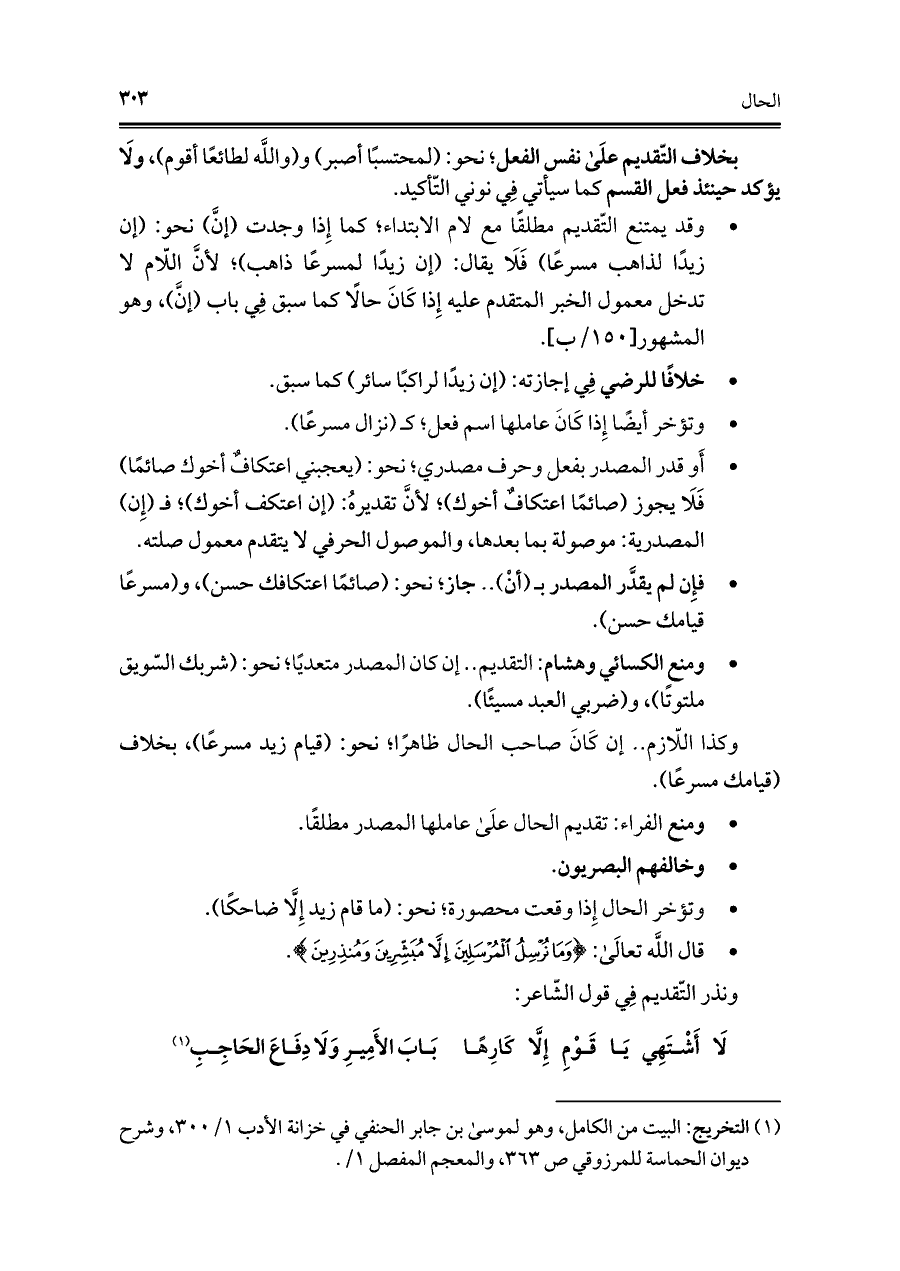 الحال ٣٠٣
بخلاف التّقديم علَىٰ نفس الفعل؛ نحو: (لمحتسبًا أصبر) و(واللَّه لطائعًا أقوم)، ولَا
يؤكد حينئذ فعل القسم كما سيأتي فِي نوني التّأكيد.
• وقد يمتنع التّقديم مطلقًا مع لام الابتداء؛ كما إِذا وجدت (إنَّ) نحو: (إن
زيدًا لذاهب مسرعًا) فَلَا يقال: (إن زيدًا لمسرعًا ذاهب)؛ لأنَّ اللّام لا
تدخل معمول الخبر المتقدم عليه إِذا كَانَ حالًا كما سبق فِي باب (إنَّ)، وهو
المشهور[١٥٠/ ب].
• خلافًا للرضي فِي إجازته: (إن زيدًا لراكبًا سائر) كما سبق.
• وتؤخر أيضًا إِذا كَانَ عاملها اسم فعل؛ كـ (نزال مسرعًا).
• أَو قدر المصدر بفعل وحرف مصدري؛ نحو: (يعجبني اعتكافٌ أخوك صائمًا)
فَلَا يجوز (صائمًا اعتكافٌ أخوك)؛ لأنَّ تقديرهُ: (إن اعتكف أخوك)؛ فـ (إِن)
المصدرية: موصولة بما بعدها، والموصول الحرفي لا يتقدم معمول صلته.
• فإِن لم يقدَّر المصدر بـ (أنْ).. جاز؛ نحو: (صائمًا اعتكافك حسن)، و(مسرعًا
قيامك حسن).
• ومنع الكسائي وهشام: التقديم.. إن كان المصدر متعديًا؛ نحو: (شربك السّويق
ملتوتًا)، و(ضربي العبد مسيئًا).
وكذا اللّازم.. إن كَانَ صاحب الحال ظاهرًا؛ نحو: (قيام زيد مسرعًا)، بخلاف
(قيامك مسرعًا).
• ومنع الفراء: تقديم الحال علَىٰ عاملها المصدر مطلقًا.
• وخالفهم البصريون.
• وتؤخر الحال إِذا وقعت محصورة؛ نحو: (ما قام زيد إِلَّا ضاحكًا).
• قال اللَّه تعالَىٰ: ﴿وَمَا نُرْسِلُ ٱلْمُرْسَلِينَ إِلَّا مُبَشِّرِينَ وَمُنذِرِينَ﴾.
ونذر التّقديم فِي قول الشّاعر:
لَا أَشْـتَهِي يَـا قَـوْمِ إِلَّا كَارِهًـا بَـابَ الأَمِيـرِ وَلَا دِفَـاعَ الحَاجِـبِ(١)
(١) التخريج: البيت من الكامل، وهو لموسىٰ بن جابر الحنفي في خزانة الأدب ١/ ٣٠٠، وشرح
ديوان الحماسة للمرزوقي ص ٣٦٣، والمعجم المفصل ١/ .